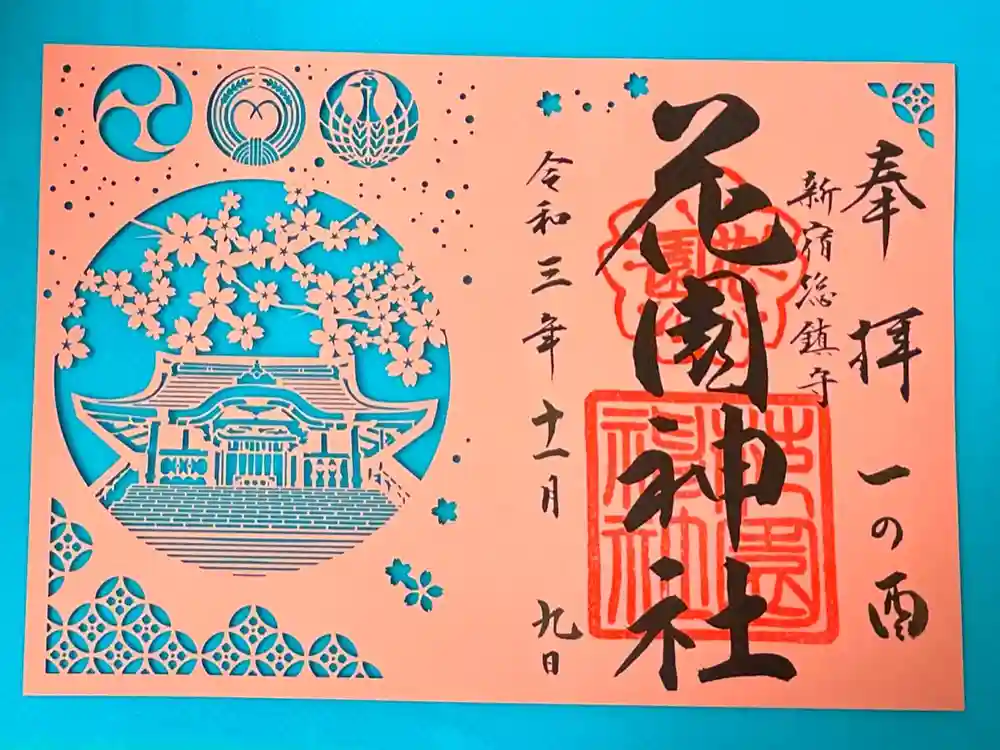 奉拝 一の酉
新宿総鎮守
花園神社
花園
花園神社
令和三年十一月 九日